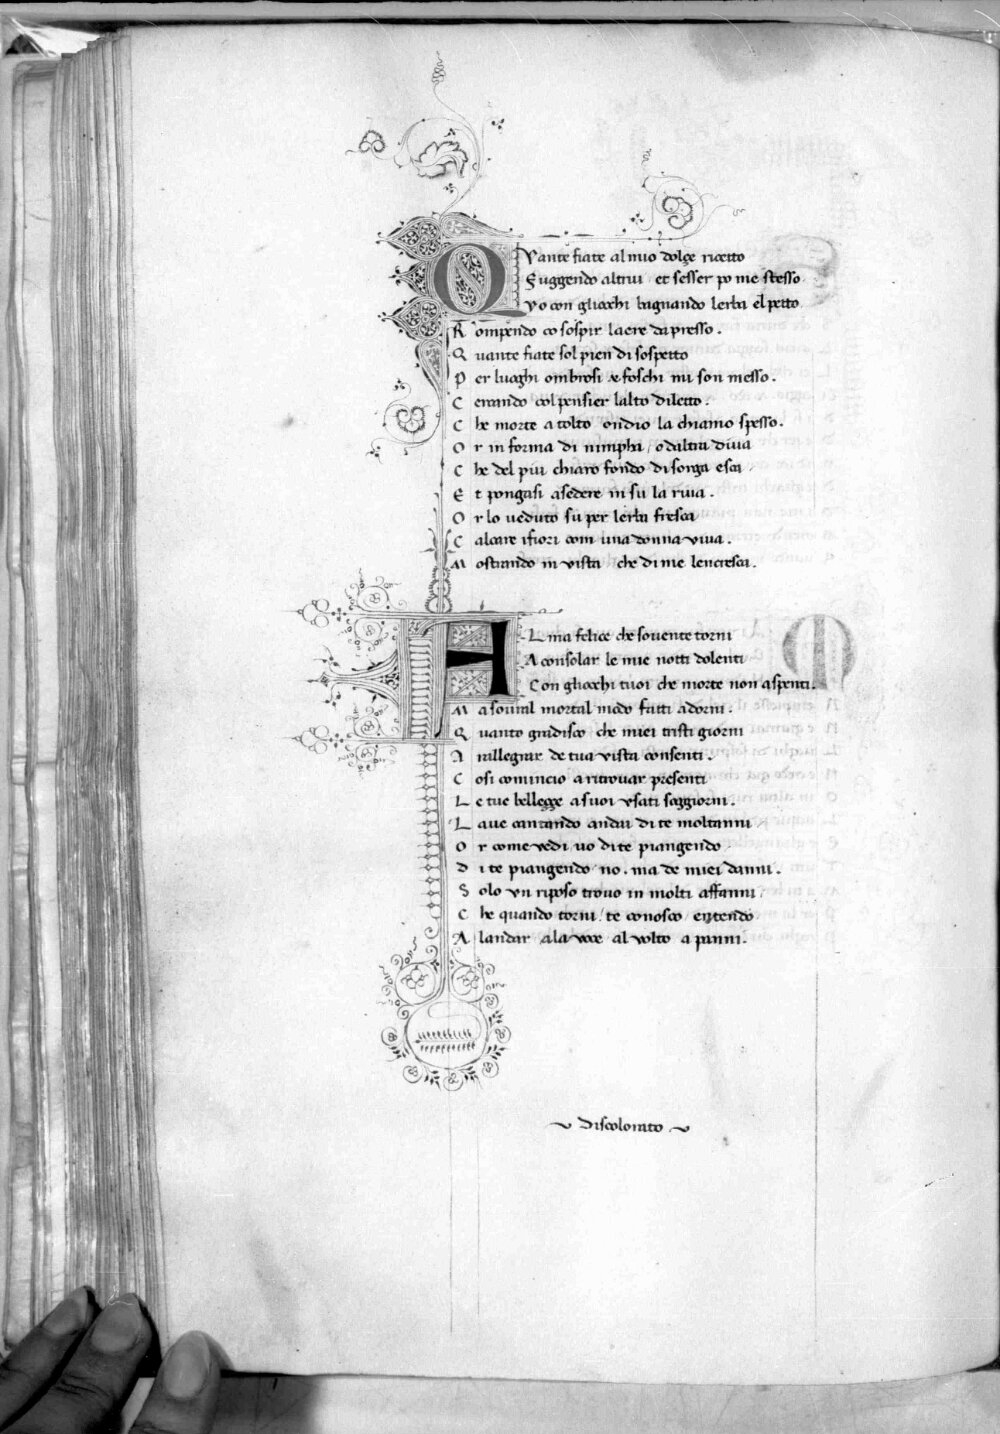 QVante fiate al mio dolçe ricetto
Fuggendo altrui et sesser po me stesso
Vo con gliocchi bagnando lerba el petto
Rompendo co sospir laere dapresso.
Quante fiate sol pien di sospetto
Per luoghi ombrosi e foschi mi son messo.
Cercando col pensier lalto diletto.
Che morte a tolto ondio la chiamo spesso.
Or in forma di nimpha / o daltra diua
Che del piu chiaro fondo di sorga esca
Et pongasi a sedere in su la riua.
Or lo ueduto su per lerba fresca
Calcare i fiori com una donna viua.
Mostrando in vista che di me lencresca.
ALma felice che souente torni
A consolar le mie notti dolenti
Con gliocchi tuoi che morte non a spenti.
Ma soural mortal modo fatti adorni.
Quanto gradisco che miei tristi giorni
A rallegrar de tua vista consenti.
Cosi comincio a ritrouar presenti
Le tue bellegge a suoi vsati soggiorni.
Laue cantando andai di te moltanni
Or come vedi uo di te piangendo
Di te piangendo no. ma de miei danni.
Solo vn riposo trouo in molti affanni
Che quando torni / te conosco entendo
Alandar ala voce al volto a panni.
~ Discolorato ~